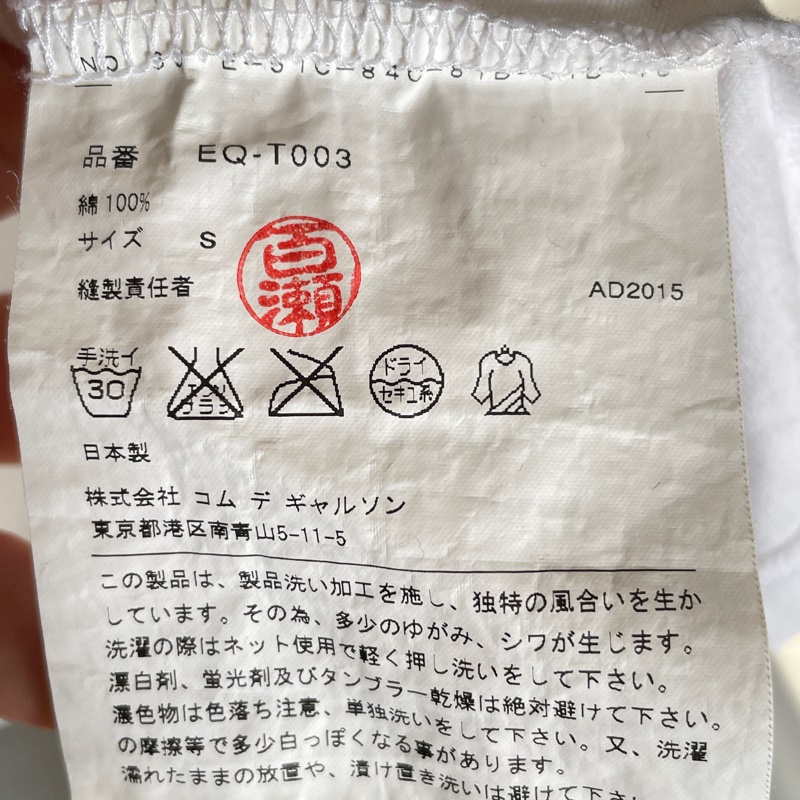 品番 EQ-T003
綿100%
サイズ S
百瀬
縫製責任者 AD2015
手洗イ
30
エンソ
サラシ
ドライ
セキユ系
日本製
株式会社 コム デ ギャルソン
東京都港区南青山5-11-5
この製品は、製品洗い加工を施し、独特の風合いを生か
しています。その為、多少のゆがみ、シワが生じます。
洗濯の際はネット使用で軽く押し洗いをして下さい。
漂白剤、蛍光剤及びタンブラー乾燥は絶対避けて下さい。
濃色物は色落ち注意、単独洗いをして下さい。又、洗濯
の摩擦等で多少白っぽくなる事があります。
濡れたままの放置や、漬け置き洗いは避けて下さ